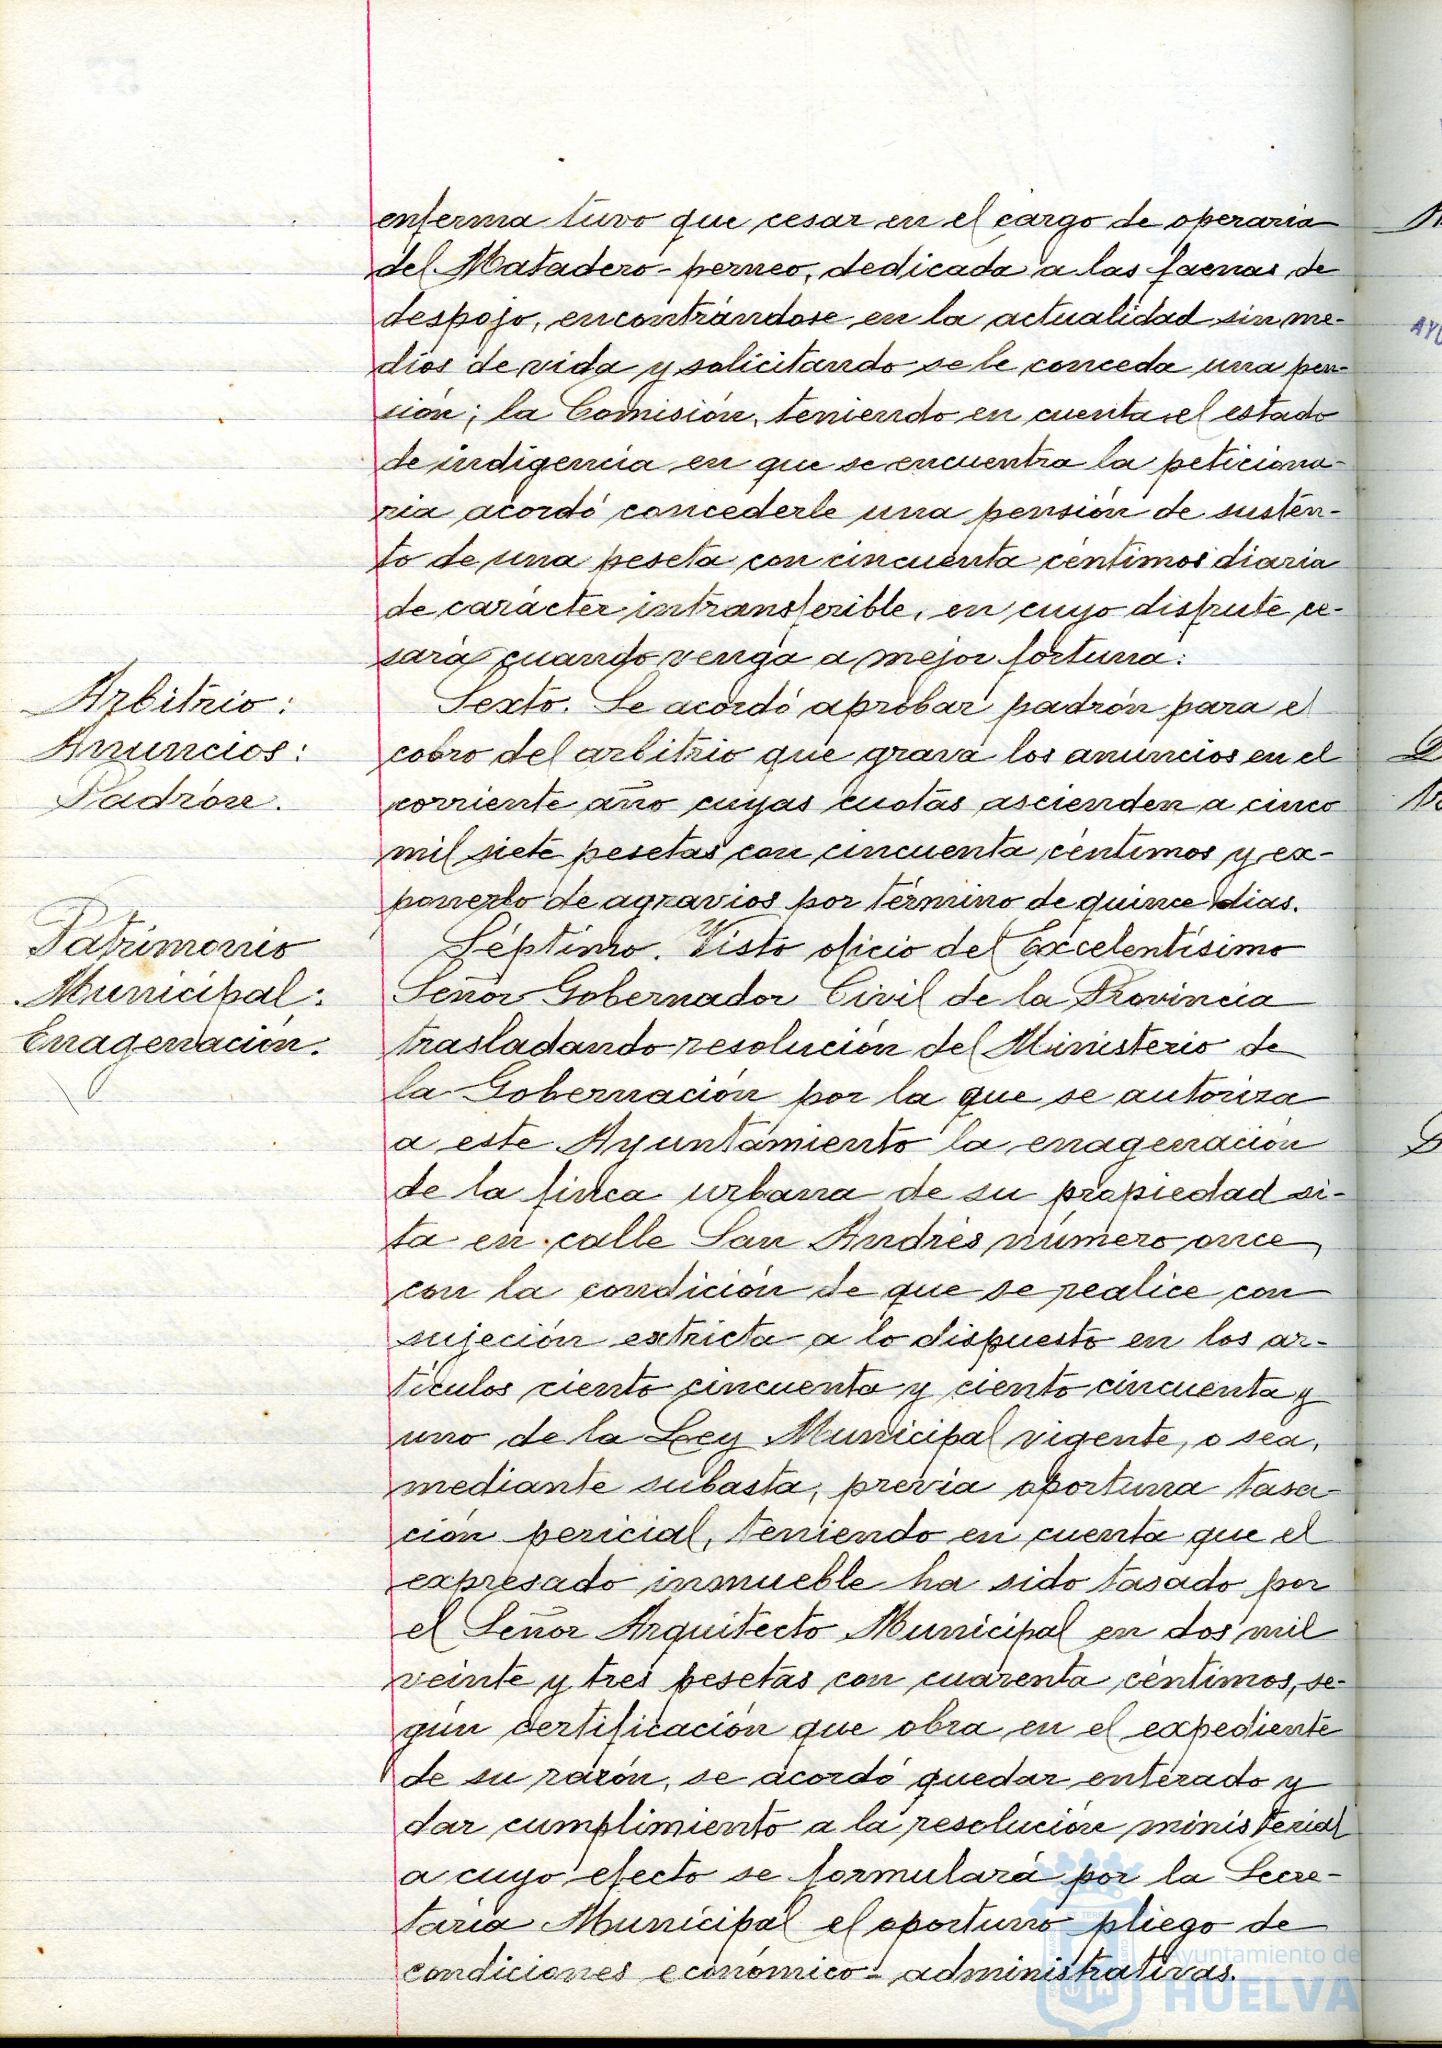 enferma tuvo que cesar en el cargo de operaria
del Matadero-perneo, dedicada a las faenas de
despojo, encontrándose en la actualidad sin me-
dios de vida y solicitando se le conceda una pen-
sión; la Comisión, teniendo en cuenta el estado
de indigencia en que se encuentra la peticiona-
ria acordó concederle una pensión de susten-
to de una peseta con cincuenta céntimos diaria
de carácter intransferible, en cuyo disfrute ce-
sará cuando venga a mejor fortuna:
Arbitrio:
Anuncios:
Padrón.
Sexto. Se acordó aprobar padrón para el
cobro del arbitrio que grava los anuncios en el
corriente año cuyas cuotas ascienden a cinco
mil siete pesetas con cincuenta céntimos y ex-
ponerlo de agravios por término de quince dias.
Patrimonio
Municipal:
Enagenación.
Séptimo. Visto oficio del Excelentísimo
Señor Gobernador Civil de la Provincia
trasladando resolución del Ministerio de
la Gobernación por la que se autoriza
a este Ayuntamiento la enagenación
de la finca urbana de su propiedad si-
ta en calle San Andrés número once,
con la condición de que se realice con
sujeción extricta a lo dispuesto en los ar-
tículos ciento cincuenta y ciento cincuenta y
uno de la Ley Municipal vigente, o sea,
mediante subasta, previa oportuna tasa-
ción pericial, teniendo en cuenta que el
expresado inmueble ha sido tasado por
el Señor Arquitecto Municipal en dos mil
veinte y tres pesetas con cuarenta céntimos, se-
gún certificación que obra en el expediente
de su razón, se acordó quedar enterado y
dar cumplimiento a la resolución ministerial
a cuyo efecto se formulará por la Secre-
taria Municipal el oportuno pliego de
condiciones económico-administrativas.
Ayuntamiento de
HUELVA